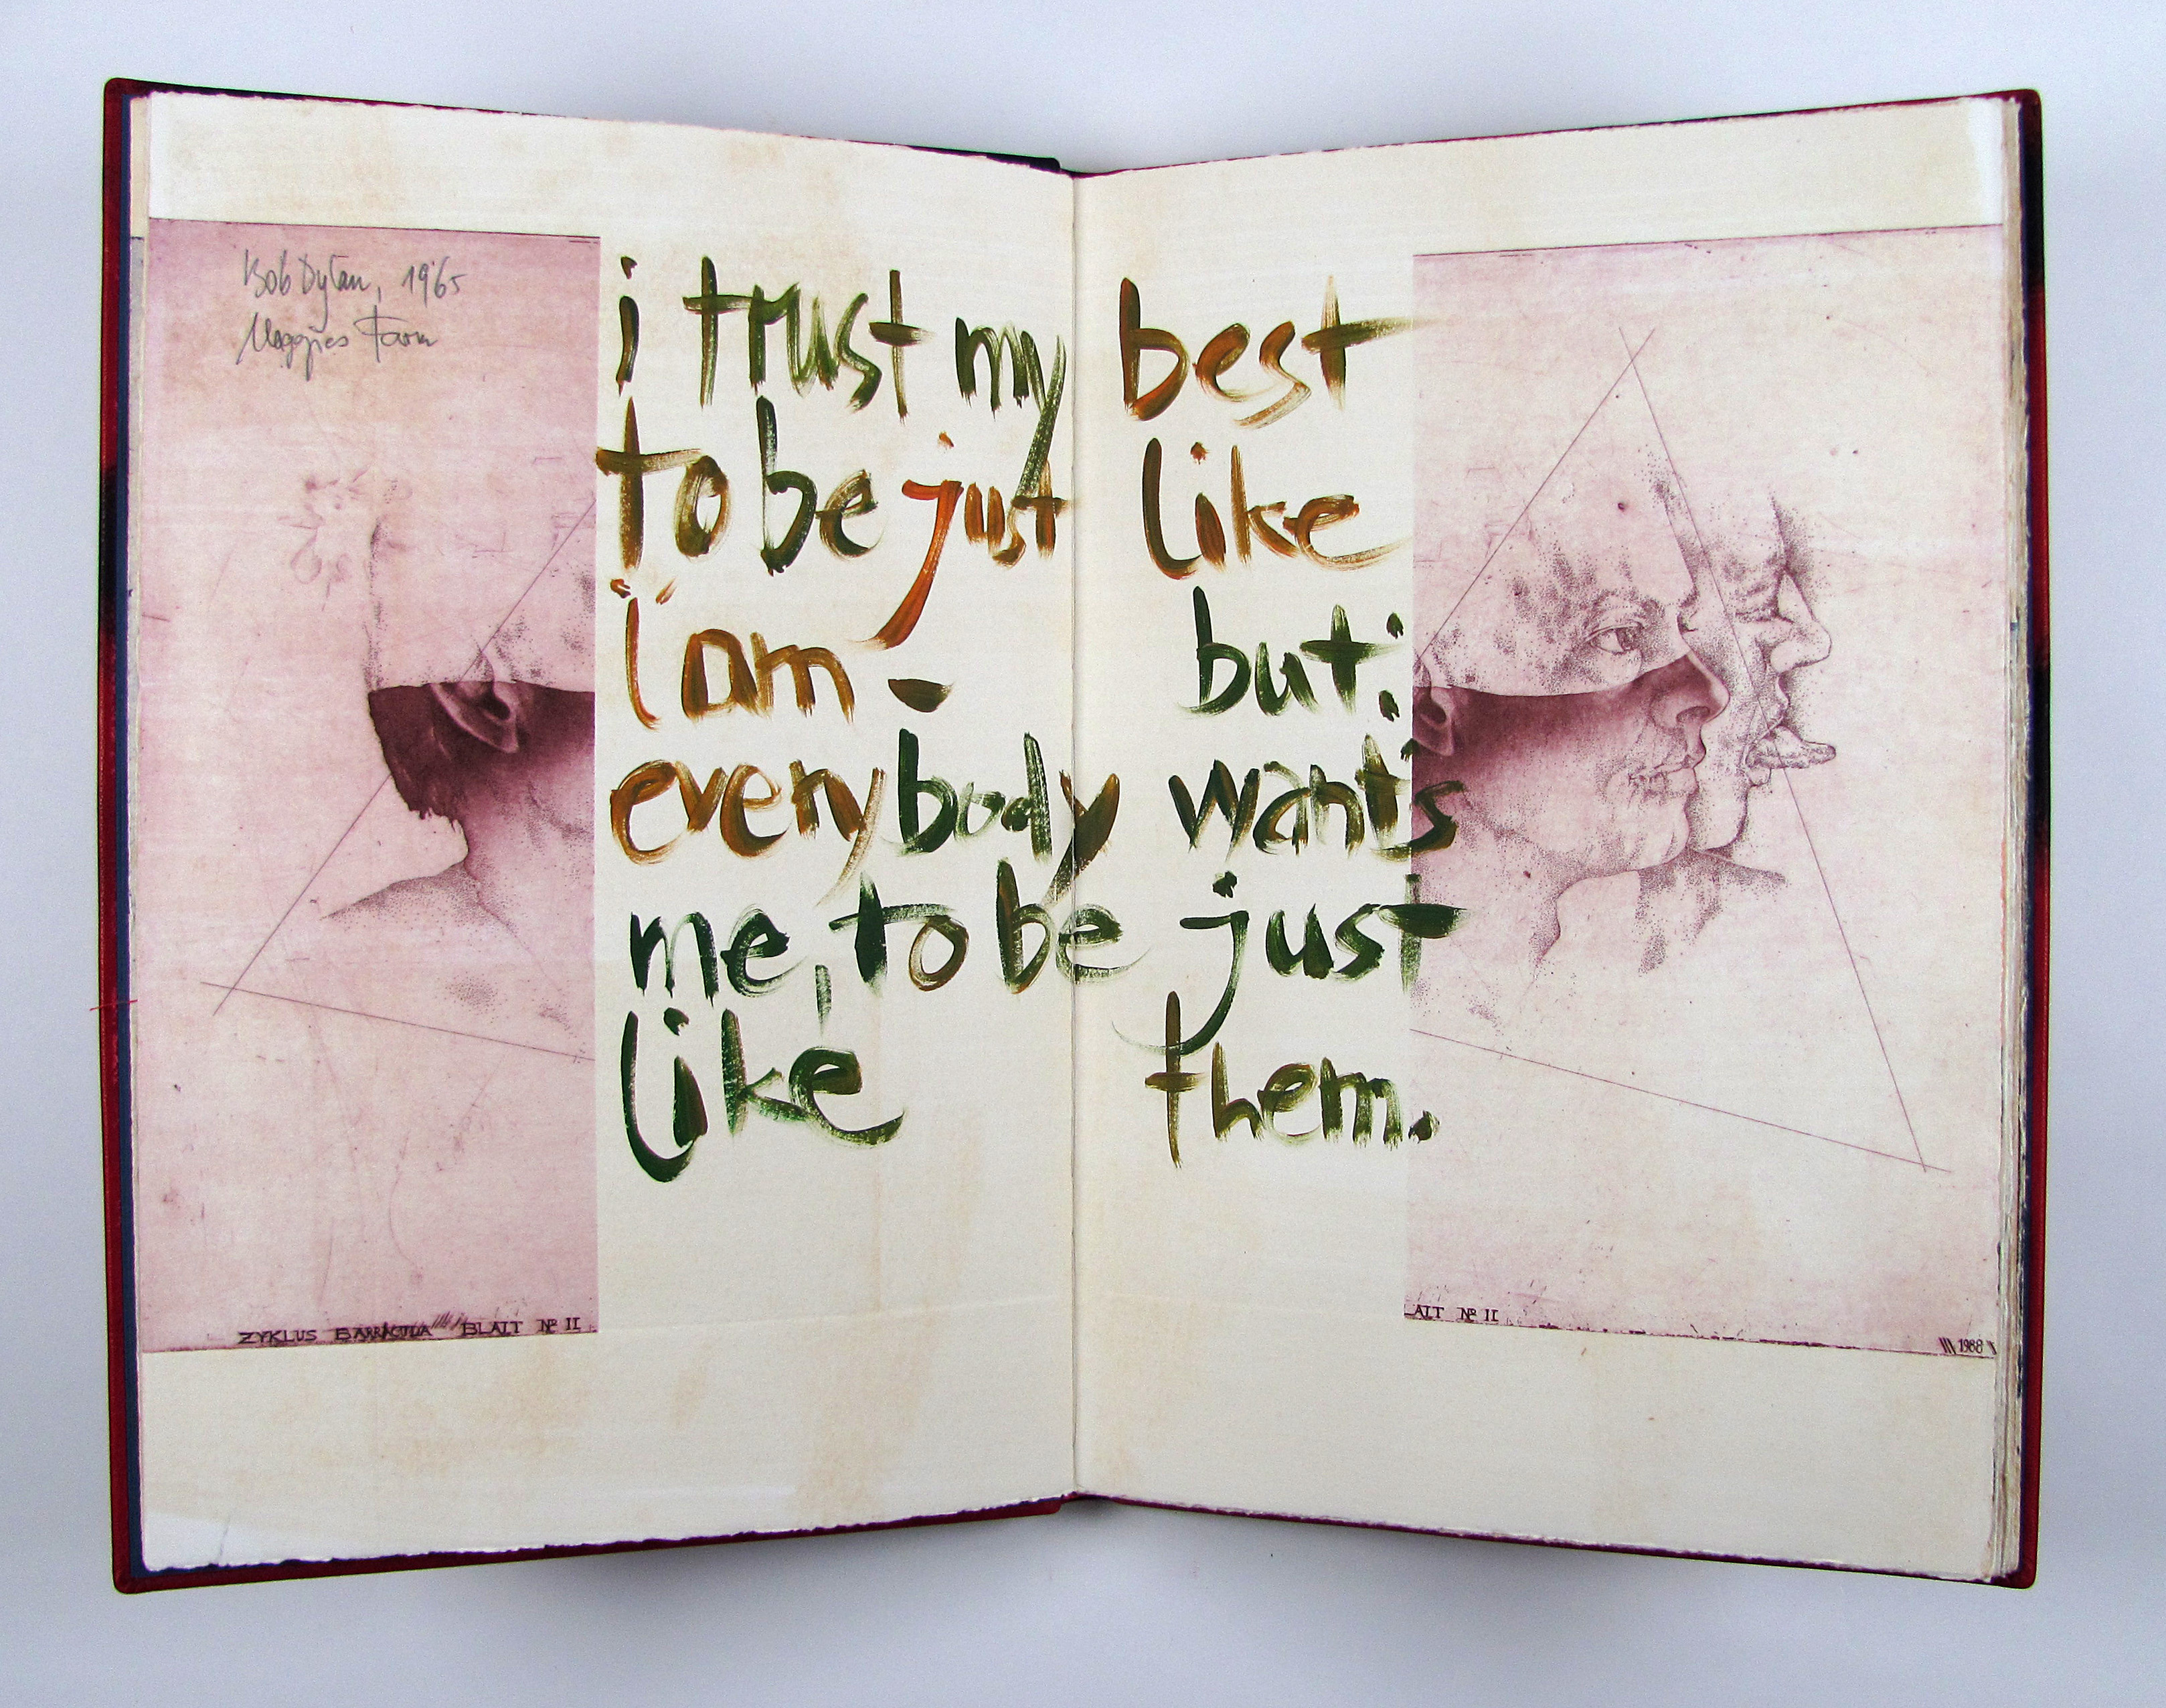 Bob Dylan, 1965
Maggies Farm
i trust my best
to be just like
i am - but:
everybody wants
me, to be just
like them.
ZYKLUS BARRACUDA BLATT № II
LATT № II
1988